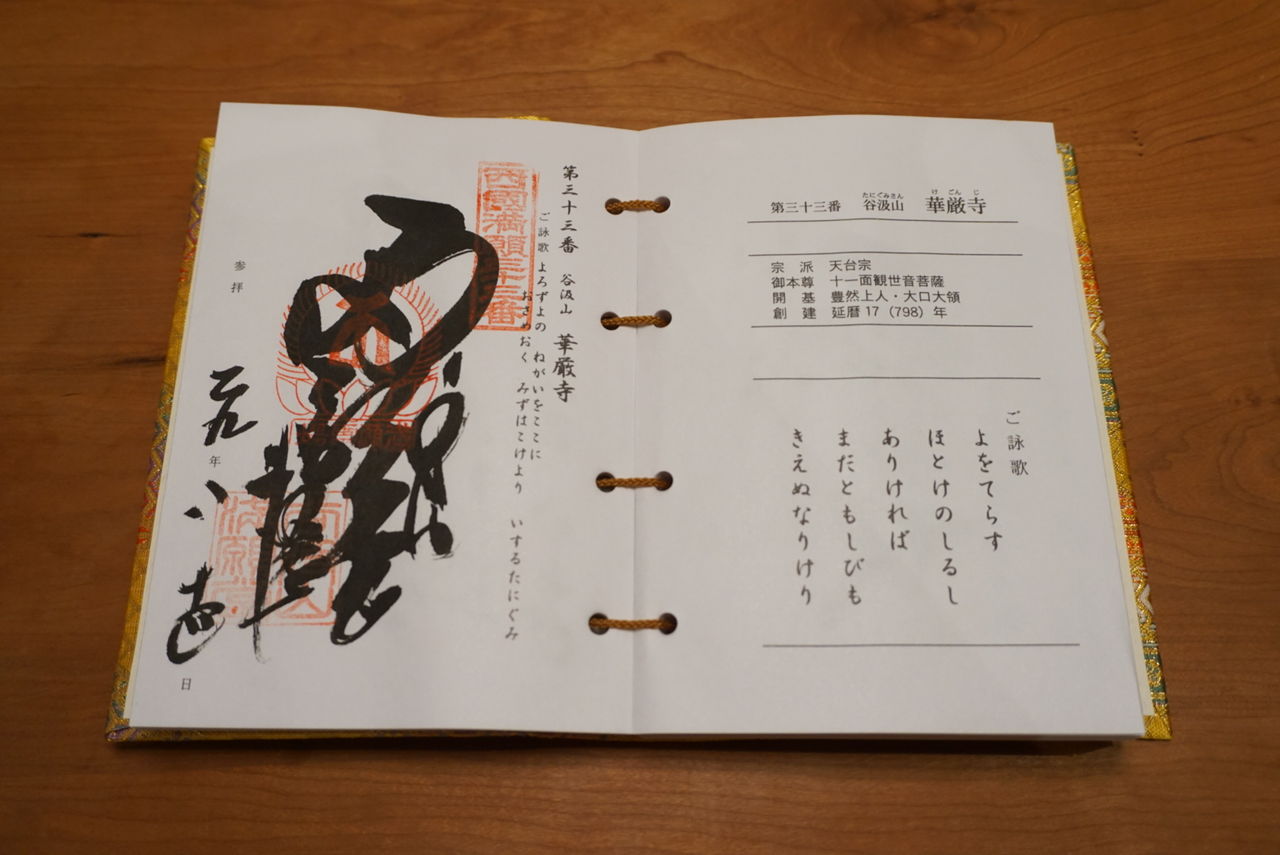 たにぐみさん けごんじ
第三十三番 谷汲山 華厳寺
宗派 天台宗
御本尊 十一面観世音菩薩
開基 豊然上人・大口大領
創建 延暦17(798)年
ご詠歌
よをてらす
ほとけのしるし
ありければ
まだともしびも
きえぬなりけり
第三十三番 谷汲山 華厳寺
ご詠歌 よろずよの ねがいをここに
おさめおく みずはこけより いするたにぐみ
西國満願三十三番
参拝
二九年 八 日